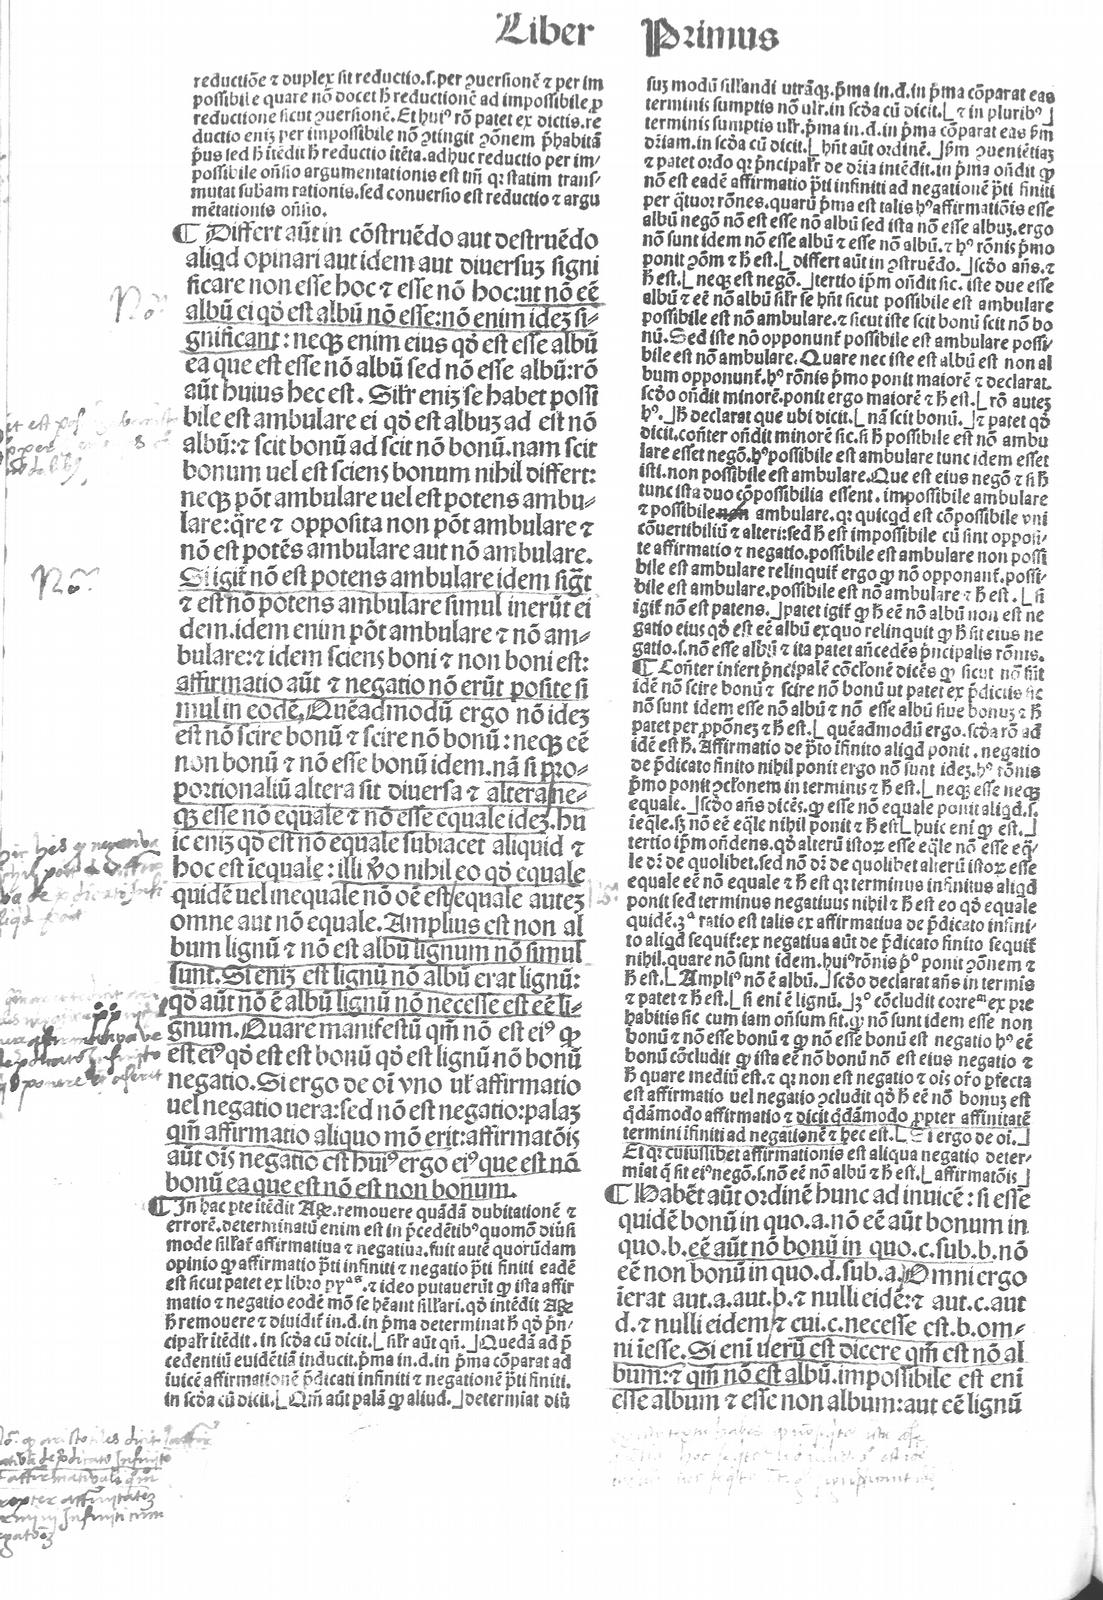 Liber Primus
reductiõe ⁊ duplex sit reductio.s.per ꝯuersionẽ ⁊ per im
possibile quare nõ docet ħ reductionẽ ad impossibile ꝓ
reductione sicut ꝯuersionẽ. Et huiꝰ rõ patet ex dictis.re
ductio eniꝫ per impossibile nõ ꝯtingit ꝯõnem p̃habitã
p̃us sed ħ itẽdit ħ reductio itẽta.adhuc reductio per im/
possibile oñsio argumentationis est tm̃ qꝛ statim trans/
mutat subam rationis.sed conuersio est reductio ⁊ argu
mẽtationis oñsio.
¶ Differt aũt in cõstruẽdo aut destruẽdo
aliqd opinari aut idem aut diuersuꝫ signi
ficare non esse hoc ⁊ esse nõ hoc:ut nõ eẽ
albũ ei qđ est albũ nõ esse:nõ enim ideꝫ si⸗
gnificant: neqꝫ enim eius qđ est esse albũ
ea que est esse nõ albũ sed nõ esse albũ:rõ
aũt huius hec est. Silr̃ eniꝫ se habet possi
bile est ambulare ei qđ est albuꝫ ad est nõ
albũ:⁊ scit bonũ ad scit nõ bonũ.nam scit
bonum uel est sciens bonum nihil differt:
neqꝫ põt ambulare uel est potens ambu⸗
lare:q̃re ⁊ opposita non põt ambulare ⁊
nõ est potẽs ambulare aut nõ ambulare.
Si igit̃ nõ est potens ambulare idem sig̃t
⁊ est nõ potens ambulare simul inerũt ei
dem.idem enim põt ambulare ⁊ nõ am⸗
bulare:⁊ idem sciens boni ⁊ non boni est:
affirmatio aũt ⁊ negatio nõ erũt posite si
mul in eodẽ. Quẽadmodũ ergo nõ ideꝫ
est nõ scire bonũ ⁊ scire nõ bonũ: neqꝫ eẽ
non bonũ ⁊ nõ esse bonũ idem.nã si pro⸗
portionaliũ altera sit diuersa ⁊ altera/ne⸗
qꝫ esse nõ equale ⁊ nõ esse equale ideꝫ.hu
ic eniꝫ qđ est nõ equale subiacet aliquid ⁊
hoc est ĩequale: illi ꝟo nihil eo qđ equale
quidẽ uel inequale nõ oẽ est/equale auteꝫ
omne aut nõ equale. Amplius est non al
bum lignũ ⁊ nõ est albũ lignum nõ simul
sunt. Si eniꝫ est lignũ nõ albũ erat lignũ:
qđ aũt nõ ẽ albũ lignũ nõ necesse est eẽ li⸗
gnum. Quare manifestũ qm̃ nõ est eiꝰ ꝙ
est eiꝰ qđ est est bonũ qđ est lignũ nõ bonũ
negatio. Si ergo de oĩ vno ul̃ affirmatio
uel negatio uera:sed nõ est negatio:palaꝫ
qm̃ affirmatio aliquo mõ erit:affirmatõis
aũt oĩs negatio est huiꝰ ergo eiꝰ que est nõ
bonũ ea que est nõ est non bonum.
¶ In hac pte itẽdit Aꝝ.remouere quãdã dubitationẽ ⁊
errorẽ.determinatũ enim est in p̃cedẽtibꝰ quomõ diũsi
mode sillat̃ affirmatiua ⁊ negatiua.fuit autẽ quorũdam
opinio ꝙ affirmatio p̃ti infiniti ⁊ negatio p̃ti finiti eadẽ
est sicut patet ex libro .⁊ ideo putauerũt ꝙ ista affir
matio ⁊ negatio eodẽ mõ se hẽant sillari.qđ intẽdit Aꝝ
ħ remouere ⁊ diuidit̃ in.d.in p̃ma determinat ħ qđ p̃n/
cipalr̃ itẽdit.in scđa cũ dicit.⌊silr̃ aũt qñ.⌋Quedã ad p̃
cedentiũ euidẽtiã inducit.p̃ma in.d.in p̃ma cõparat ad
iuicẽ affirmationẽ p̃dicati infiniti ⁊ negationẽ p̃ti finiti.
in scđa cũ dicit.⌊Qm̃ aũt palã ꝙ aliud.⌋determiat diũ
suꝫ modũ sillandi utrãqꝫ.p̃ma in.d.in p̃ma cõparat eas
terminis sumptis nõ ulr̃.in scđa cũ dicit.⌊⁊ in pluribꝰ⌋
terminis sumptis ulr̃.p̃ma in.d.in p̃ma cõparat eas p̃m
dr̃iam.in scđa cũ dicit.⌊hñt aũt ordinẽ.⌋p̃m ꝯueniẽtiaꝫ
⁊ patet ordo qꝛ p̃ncipalr̃ de dr̃ia intẽdit.in p̃ma oñdit ꝙ
nõ est eadẽ affirmatio p̃ti infiniti ad negationẽ p̃ti finiti
per q̃tuor rõnes.quarũ p̃ma est talis hꝰ affirmatiõis esse
albũ negõ nõ est esse nõ albũ sed ista nõ esse albuꝫ.ergo
nõ sunt idem nõ esse albũ ⁊ esse nõ albũ.⁊ hꝰ rõnis p̃mo
ponit ꝯõm ⁊ ħ est.⌊differt aũt in ꝯstruẽdo.⌋scđo añs.⁊
ħ est.⌊neqꝫ est negõ.⌋tertio ip̃m oñdit sic.iste due esse
albũ ⁊ eẽ nõ albũ silr̃ se hñt sicut possibile est ambulare
possibile est nõ ambulare.⁊ sicut iste scit bonũ scit nõ bo
nũ. Sed iste nõ opponunt̃ possibile est ambulare possi/
bile est nõ ambulare. Quare nec iste est albũ est non al
bum opponunt̃.hꝰ rõnis p̃mo ponit maiorẽ ⁊ declarat.
scđo oñdit minorẽ.ponit ergo maiorẽ ⁊ ħ est.⌊rõ auteꝫ
hꝰ.⌋ħ declarat que ubi dicit.⌊nã scit bonũ.⌋⁊ patet qđ
dicit.coñter oñdit minorẽ sic.si ħ possibile est nõ ambu
lare esset negõ.hꝰ possibile est ambulare tunc idem esset
isti.non possibile est ambulare. Que est eius negõ ⁊ si ħ
tunc ista duo cõpossibilia essent.impossibile ambulare
⁊ possibile non ambulare.qꝛ quicqd est cõpossibile vni
cõuertibiliũ ⁊ alteri:sed ħ est impossibile cũ sint opposi/
te affirmatio ⁊ negatio.possibile est ambulare non possi
bile est ambulare relinquit̃ ergo ꝙ nõ opponant̃.possi/
bile est ambulare.possibile est nõ ambulare ⁊ ħ est.⌊si
igit̃ nõ est patens.⌋patet igit̃ ꝙ ħ eẽ nõ albũ non est ne
gatio eius qđ est eẽ albũ exquo relinquit̃ ꝙ ħ sit eius ne
gatio.s.nõ esse albũ ⁊ ita patet añcedẽs p̃ncipalis rõnis.
¶ Coñter infert p̃ncipalẽ cõclonẽ dicẽs ꝙ sicut nõ sũt
idẽ nõ scire bonũ ⁊ scire nõ bonũ ut patet ex p̃dictis sic
nõ sunt idem esse nõ albũ ⁊ nõ esse albũ siue bonuꝫ ⁊ ħ
patet per ꝓpõneꝫ ⁊ ħ est.⌊quẽadmodũ ergo.scđa rõ ad
idẽ est ħ. Affirmatio de p̃to ifinito aliqd ponit.negatio
de p̃dicato finito nihil ponit ergo nõ sunt ideꝫ.hꝰ rõnis
p̃mo ponit ꝯclonem in terminis ⁊ ħ est.⌊neqꝫ esse neqꝫ
equale.⌋scđo añs dicẽs.ꝙ esse nõ equale ponit aliqd.s.
ieq̃le.sꝫ nõ eẽ eq̃le nihil ponit ⁊ ħ est⌊huic eni ꝙ est.⌋
tertio ip̃m oñdens.qđ alterũ istoꝝ esse eq̃le nõ esse eq̃/
le dr̃ de quolibet.sed nõ dr̃ de quolibet alterũ istoꝝ esse
equale eẽ nõ equale ⁊ ħ est qꝛ terminus infinitus aliqd
ponit sed terminus negatiuus nihil ⁊ ħ est eo qđ equale
quidẽ.3ᵃ ratio est talis ex affirmatiua de p̃dicato infini/
to aliqd sequit̃:ex negatiua aũt de p̃dicato finito sequit̃
nihil.quare nõ sunt idem.huiꝰ rõnis pᵒ ponit ꝯõnem ⁊
ħ est.⌊Ampliꝰ nõ ẽ albũ.⌋scđo declarat añs in termis
⁊ patet ⁊ ħ est.⌊si eni ẽ lignũ.⌋3ᵒ cõcludit ex pre
habitis sic cum iam oñsum sit.ꝙ nõ sunt idem esse non
bonũ ⁊ nõ esse bonũ ⁊ ꝙ nõ esse bonũ est negatio hꝰ eẽ
bonũ cõcludit ꝙ ista eẽ nõ bonũ nõ est eius negatio ⁊
ħ quare mediũ est.⁊ qꝛ non est negatio ⁊ oĩs ořo p̃fecta
est affirmatio uel negatio ꝯcludit qđ ħ eẽ nõ bonuꝫ est
q̃dãmodo affirmatio ⁊ dicit q̃dãmodo ꝓpter affinitatẽ
termini ifiniti ad negationẽ ⁊ hec est.⌊Si ergo de oi.⌋
Et qꝛ cuiuslibet affirmationis est aliqua negatio deter/
miat q̃ sit eiꝰ negõ.s.nõ eẽ nõ albũ ⁊ ħ est.⌊affirmatõis⌋
¶ Habẽt aũt ordinẽ hunc ad inuicẽ: si esse
quidẽ bonũ in quo.a.nõ eẽ aũt bonum in
quo.b.eẽ aũt nõ bonũ in quo.c.sub.b.nõ
eẽ non bonũ in quo.d.sub.a. Omni ergo
ĩerat aut.a.aut.b.⁊ nulli eidẽ:⁊ aut.c.aut
d.⁊ nulli eidem/⁊ cui.c.necesse est.b.om⸗
ni ĩesse. Si eni uerũ est dicere qm̃ est nõ al
bum:⁊ qm̃ nõ est albũ.impossibile est eni
esse album ⁊ esse non album:aut eẽ lignũ